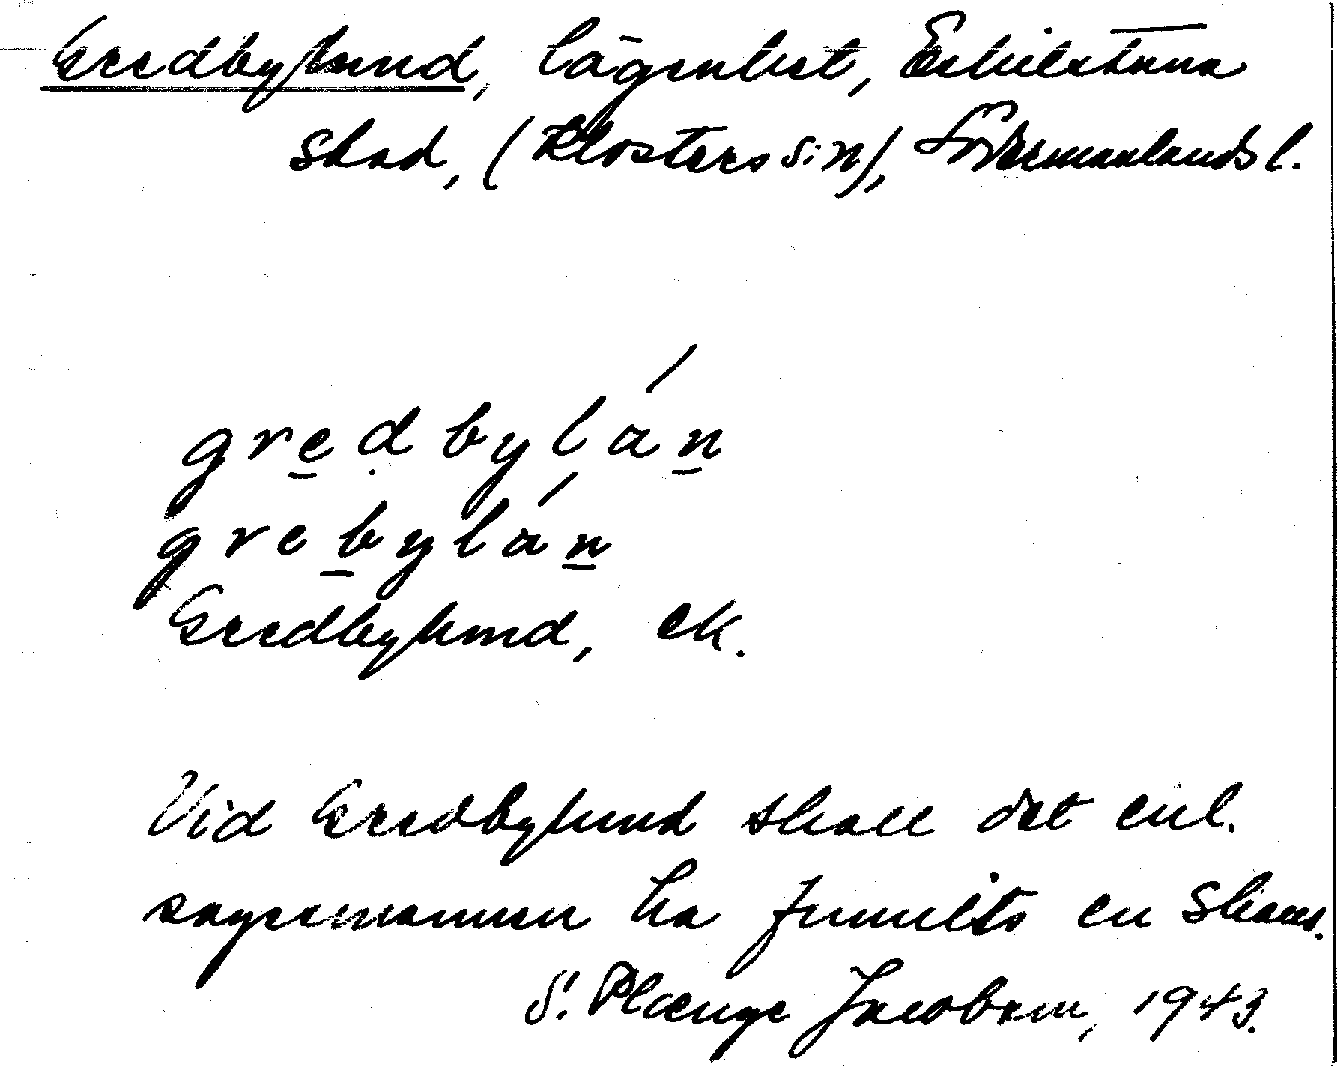 Gredbylund, lägenhet, Eskilstuna
stad, (Klosters s:n), Södermanlands l.
gredbylán
grebylán
Gredbylund, ek.
Vid Gredbylund skall det enl.
sagesmannen ha funnits en skans.
S. Plænge Jacobson, 1943.